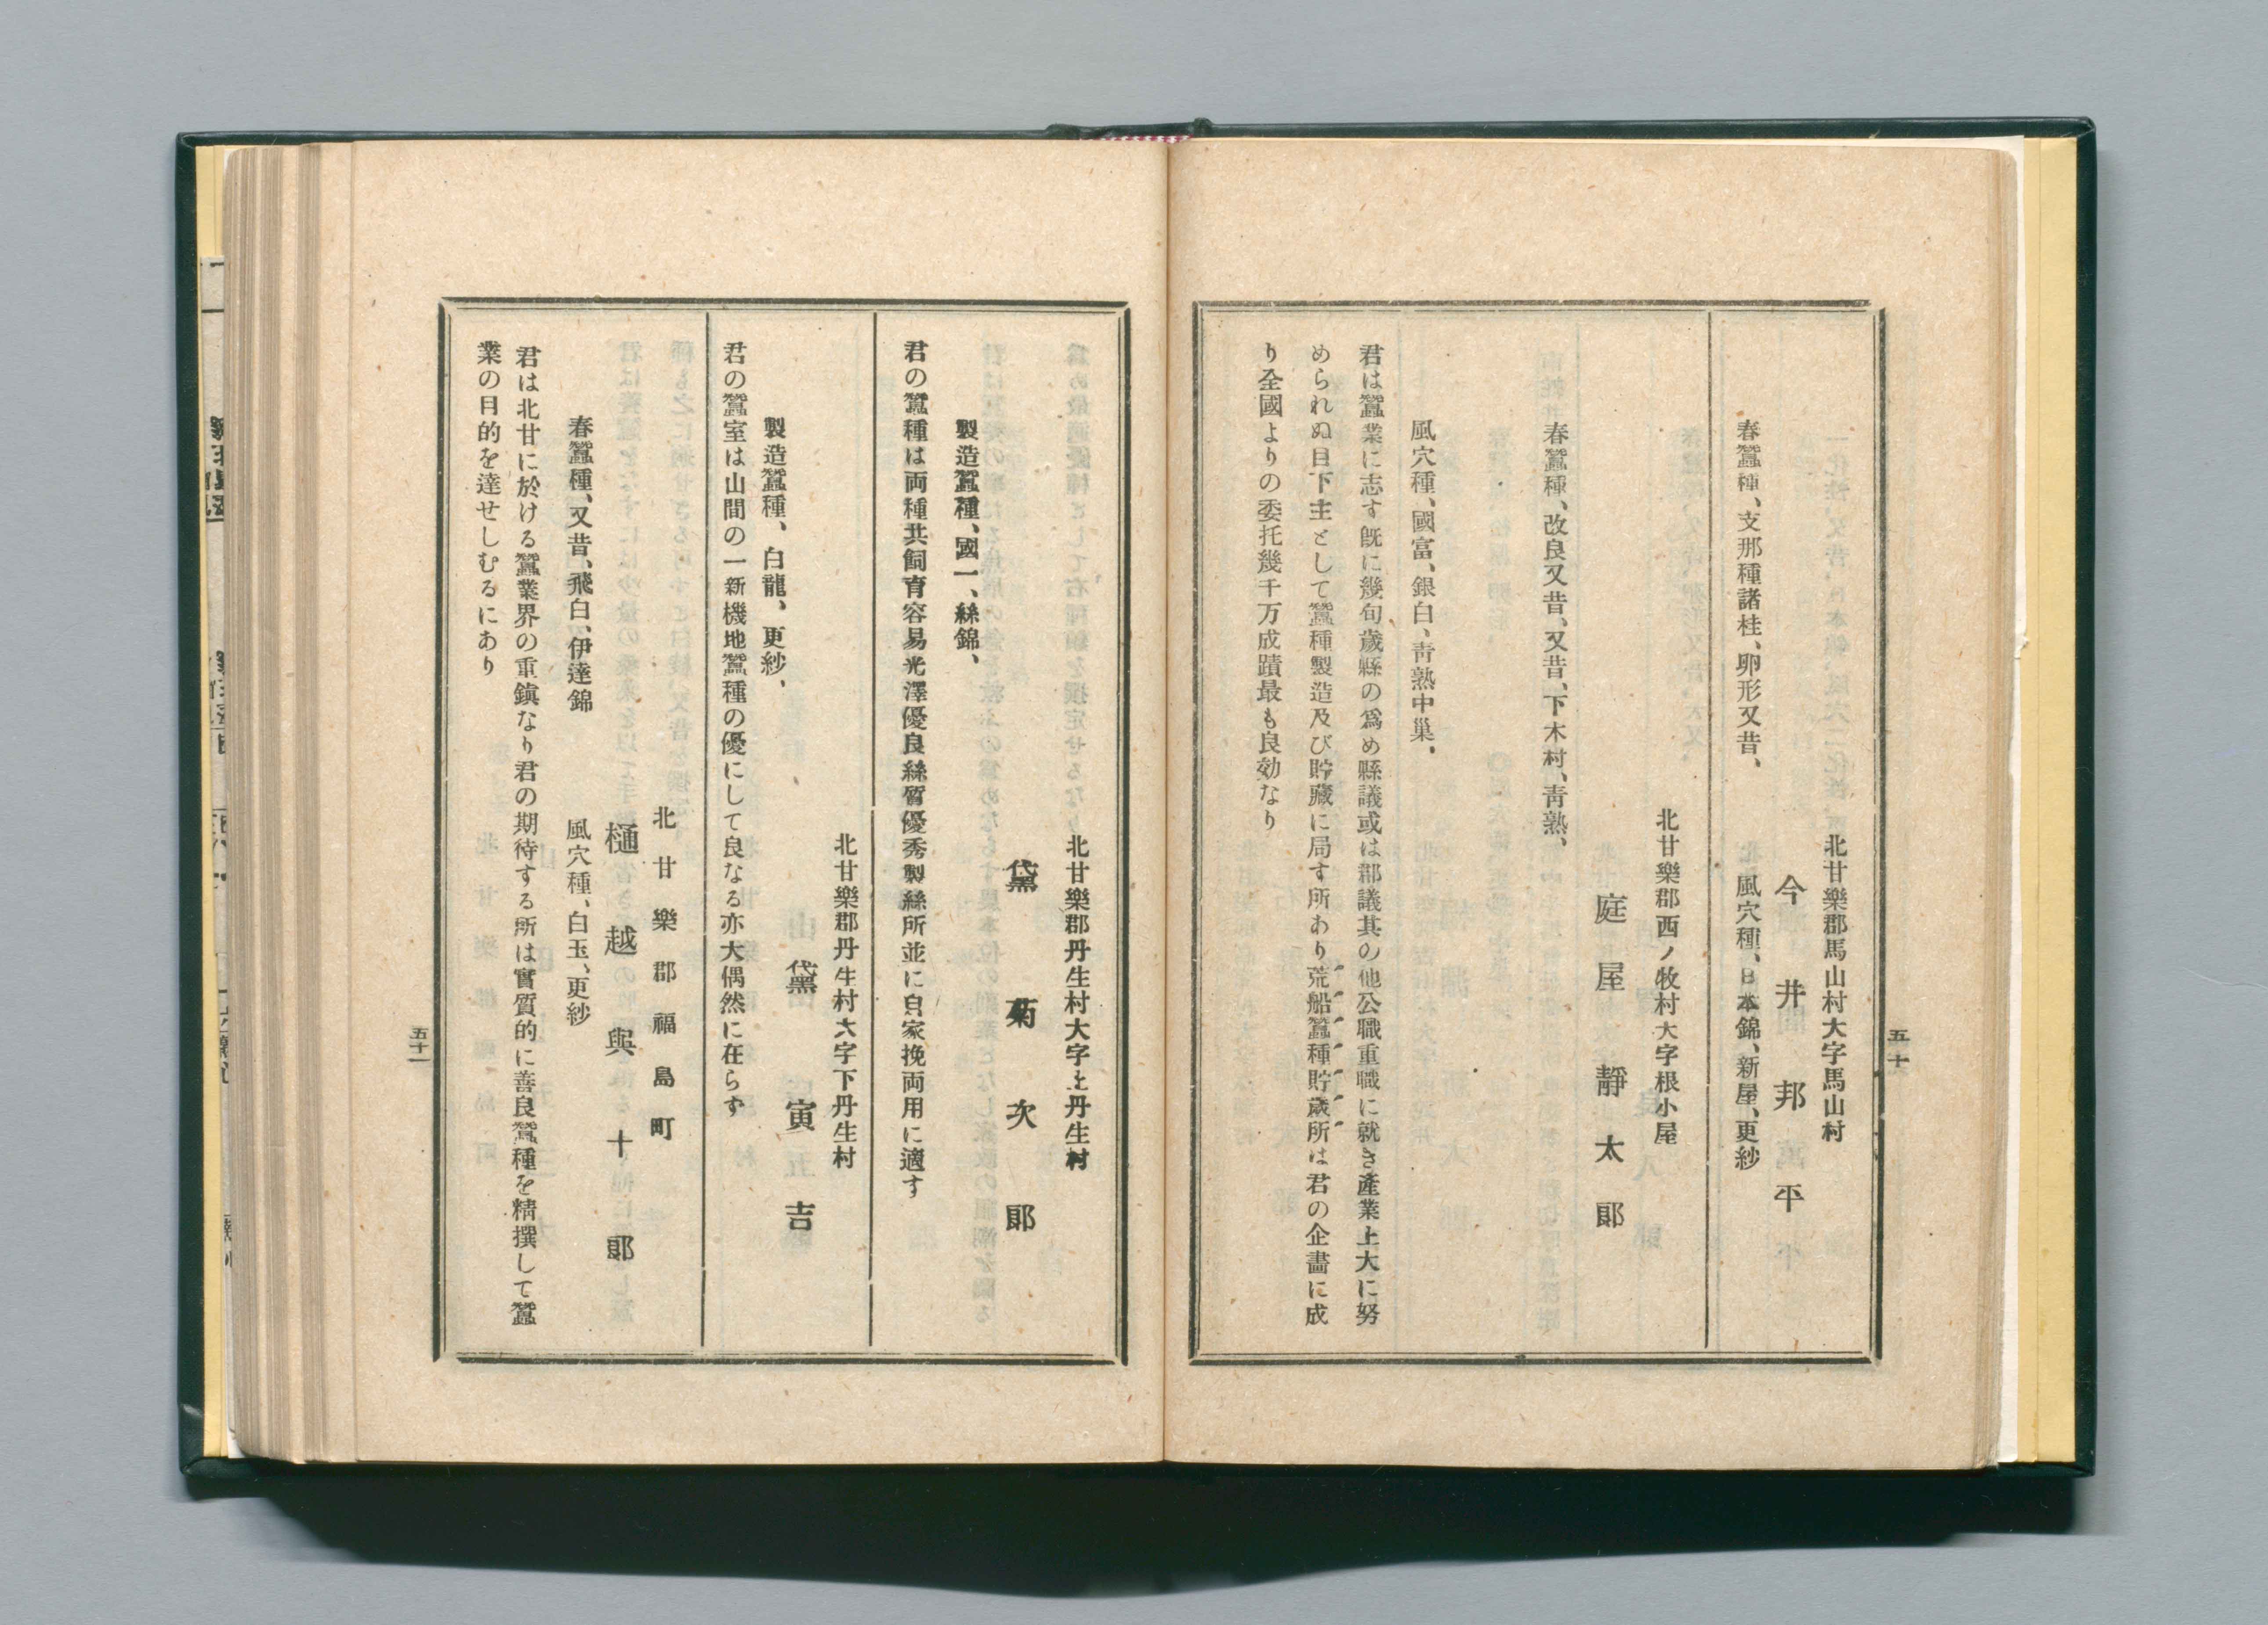 北甘樂郡馬山村大字馬山村
今井邦平
春蠶種、支那種諸桂、卵形又昔、
風穴種、日本錦、新屋、更紗
北甘樂郡西ノ牧村大字根小屋
庭屋靜太郞
春蠶種、改良又昔、又昔、下木村、靑熟、
風穴種、國富、銀白、靑熟中巢、
君は蠶業に志す旣に幾旬歲縣の爲め縣議或は郡議其の他公職重職に就き產業上大に努
められぬ目下主として蠶種製造及び貯藏に局す所あり荒船蠶種貯歲所は君の企畵に成
り全國よりの委托幾千万成蹟最も良効なり
五十
北甘樂郡丹生村大字上丹生村
黛菊次郞
製造蠶種、國一、絲錦、
君の蠶種は両種共飼育容易光澤優良絲質優秀製絲所並に自家挽両用に適す
北甘樂郡丹生村大字下丹生村
黛寅吉
製造蠶種、白龍、更紗、
君の蠶室は山間の一新機地蠶種の優にして良なる亦大偶然に在らず
北甘樂郡福島町
樋越與十郞
春蠶種、又昔、飛白、伊達錦
風穴種、白玉、更紗
君は北甘に於ける蠶業界の重鎭なり君の期待する所は實質的に善良蠶種を精撰して蠶
業の目的を達せしむるにあり
五十一